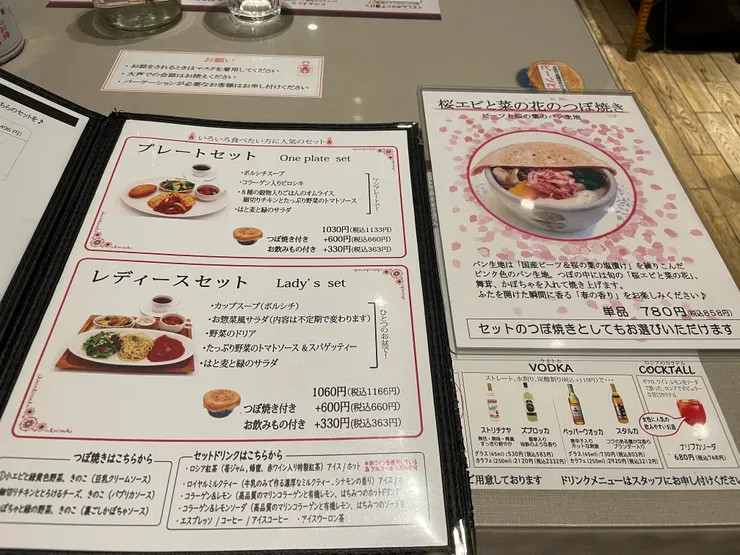 お願い
・お話をされるときはマスクを着用してください
・大声での会話はお控えください
・パーテーションが必要なお客様はお申し付けください
ちらのセットを♪
496円)
いろいろ食べたい方に人気のセット
プレートセット One plate set
・ボルシチスープ
・コラーゲン入りピロシキ
・8種の穀物入りごはんのオムライス、
細切りチキンとたっぷり野菜のトマトソース
・はと麦と緑のサラダ
ワンプレートで!
1030円(税込1133円)
つぼ焼き付き +600円(税込660円)
お飲もの付き +330円(税込363円)
レディースセット Lady's set
・カップスープ(ボルシチ)
・お惣菜風サラダ(内容は不定期で変わります)
・野菜のドリア
・たっぷり野菜のトマトソース&スパゲッティー
・はと麦と緑のサラダ
ひとつのお盆で!
1060円(税込1166円)
つぼ焼き付き +600円(税込660円)
お飲もの付き +330円(税込363円)
つぼ焼きはこちらから
①小エビと緑黄色野菜、きのこ(豆乳クリームソース)
細切りチキンととろけるチーズ、きのこ(パプリカソース)
ぼちゃと緑の野菜、きのこ(裏ごしかぼちゃソース)
セットドリンクはこちらから
・ロシア紅茶(苺ジャム、蜂蜜、赤ワイン入り特製紅茶)アイス/ホット
・ロイヤルミルクティー(牛乳のみで作る濃厚なミルクティー、シナモンの香り)アイス/ホ
・コラーゲン&レモン(高品質のマリンコラーゲンと有機レモン、はちみつのホットドリンク
・コラーゲン&レモンソーダ(高品質のマリンコラーゲンと有機レモン、はちみつのソーダ
・エスプレッソ/コーヒー/アイスコーヒー ・アイスウーロン茶
桜エビと菜の花のつぼ焼き
ビーツと桜の葉のパン生地
パン生地は「国産ビーツ&桜の葉の塩漬け」を練りこんだ
ピンク色のパン生地。つぼの中には旬の「桜エビと菜の花」、
舞茸、かぼちゃを入れて焼き上げます。
ふたを開けた瞬間に香る「春の香り」をお楽しみください♪
単品 780円(税込858円)
セットのつぼ焼きとしてもお選びいただけます
ウオトカ
VODKA
ストレート、水割り、炭酸割り(税込+110円)で・・・
ストリチナヤ
ズブロッカ
ペッパーウオッカ
スタルカ
グラス(45ml):530円(税込583円)
カラフェ(250ml):2120円(税込2332円)
グラス(45ml):730円(税込803円)
カラフェ(250ml):2920円(税込3212円)
ロシアのカクテル
COCKTALL
女性に人気の
飲みやすいお酒
ナリフカソーダ
680円(税込748円)
ご用意しております ドリンクメニューはスタッフにお申し付けくだ